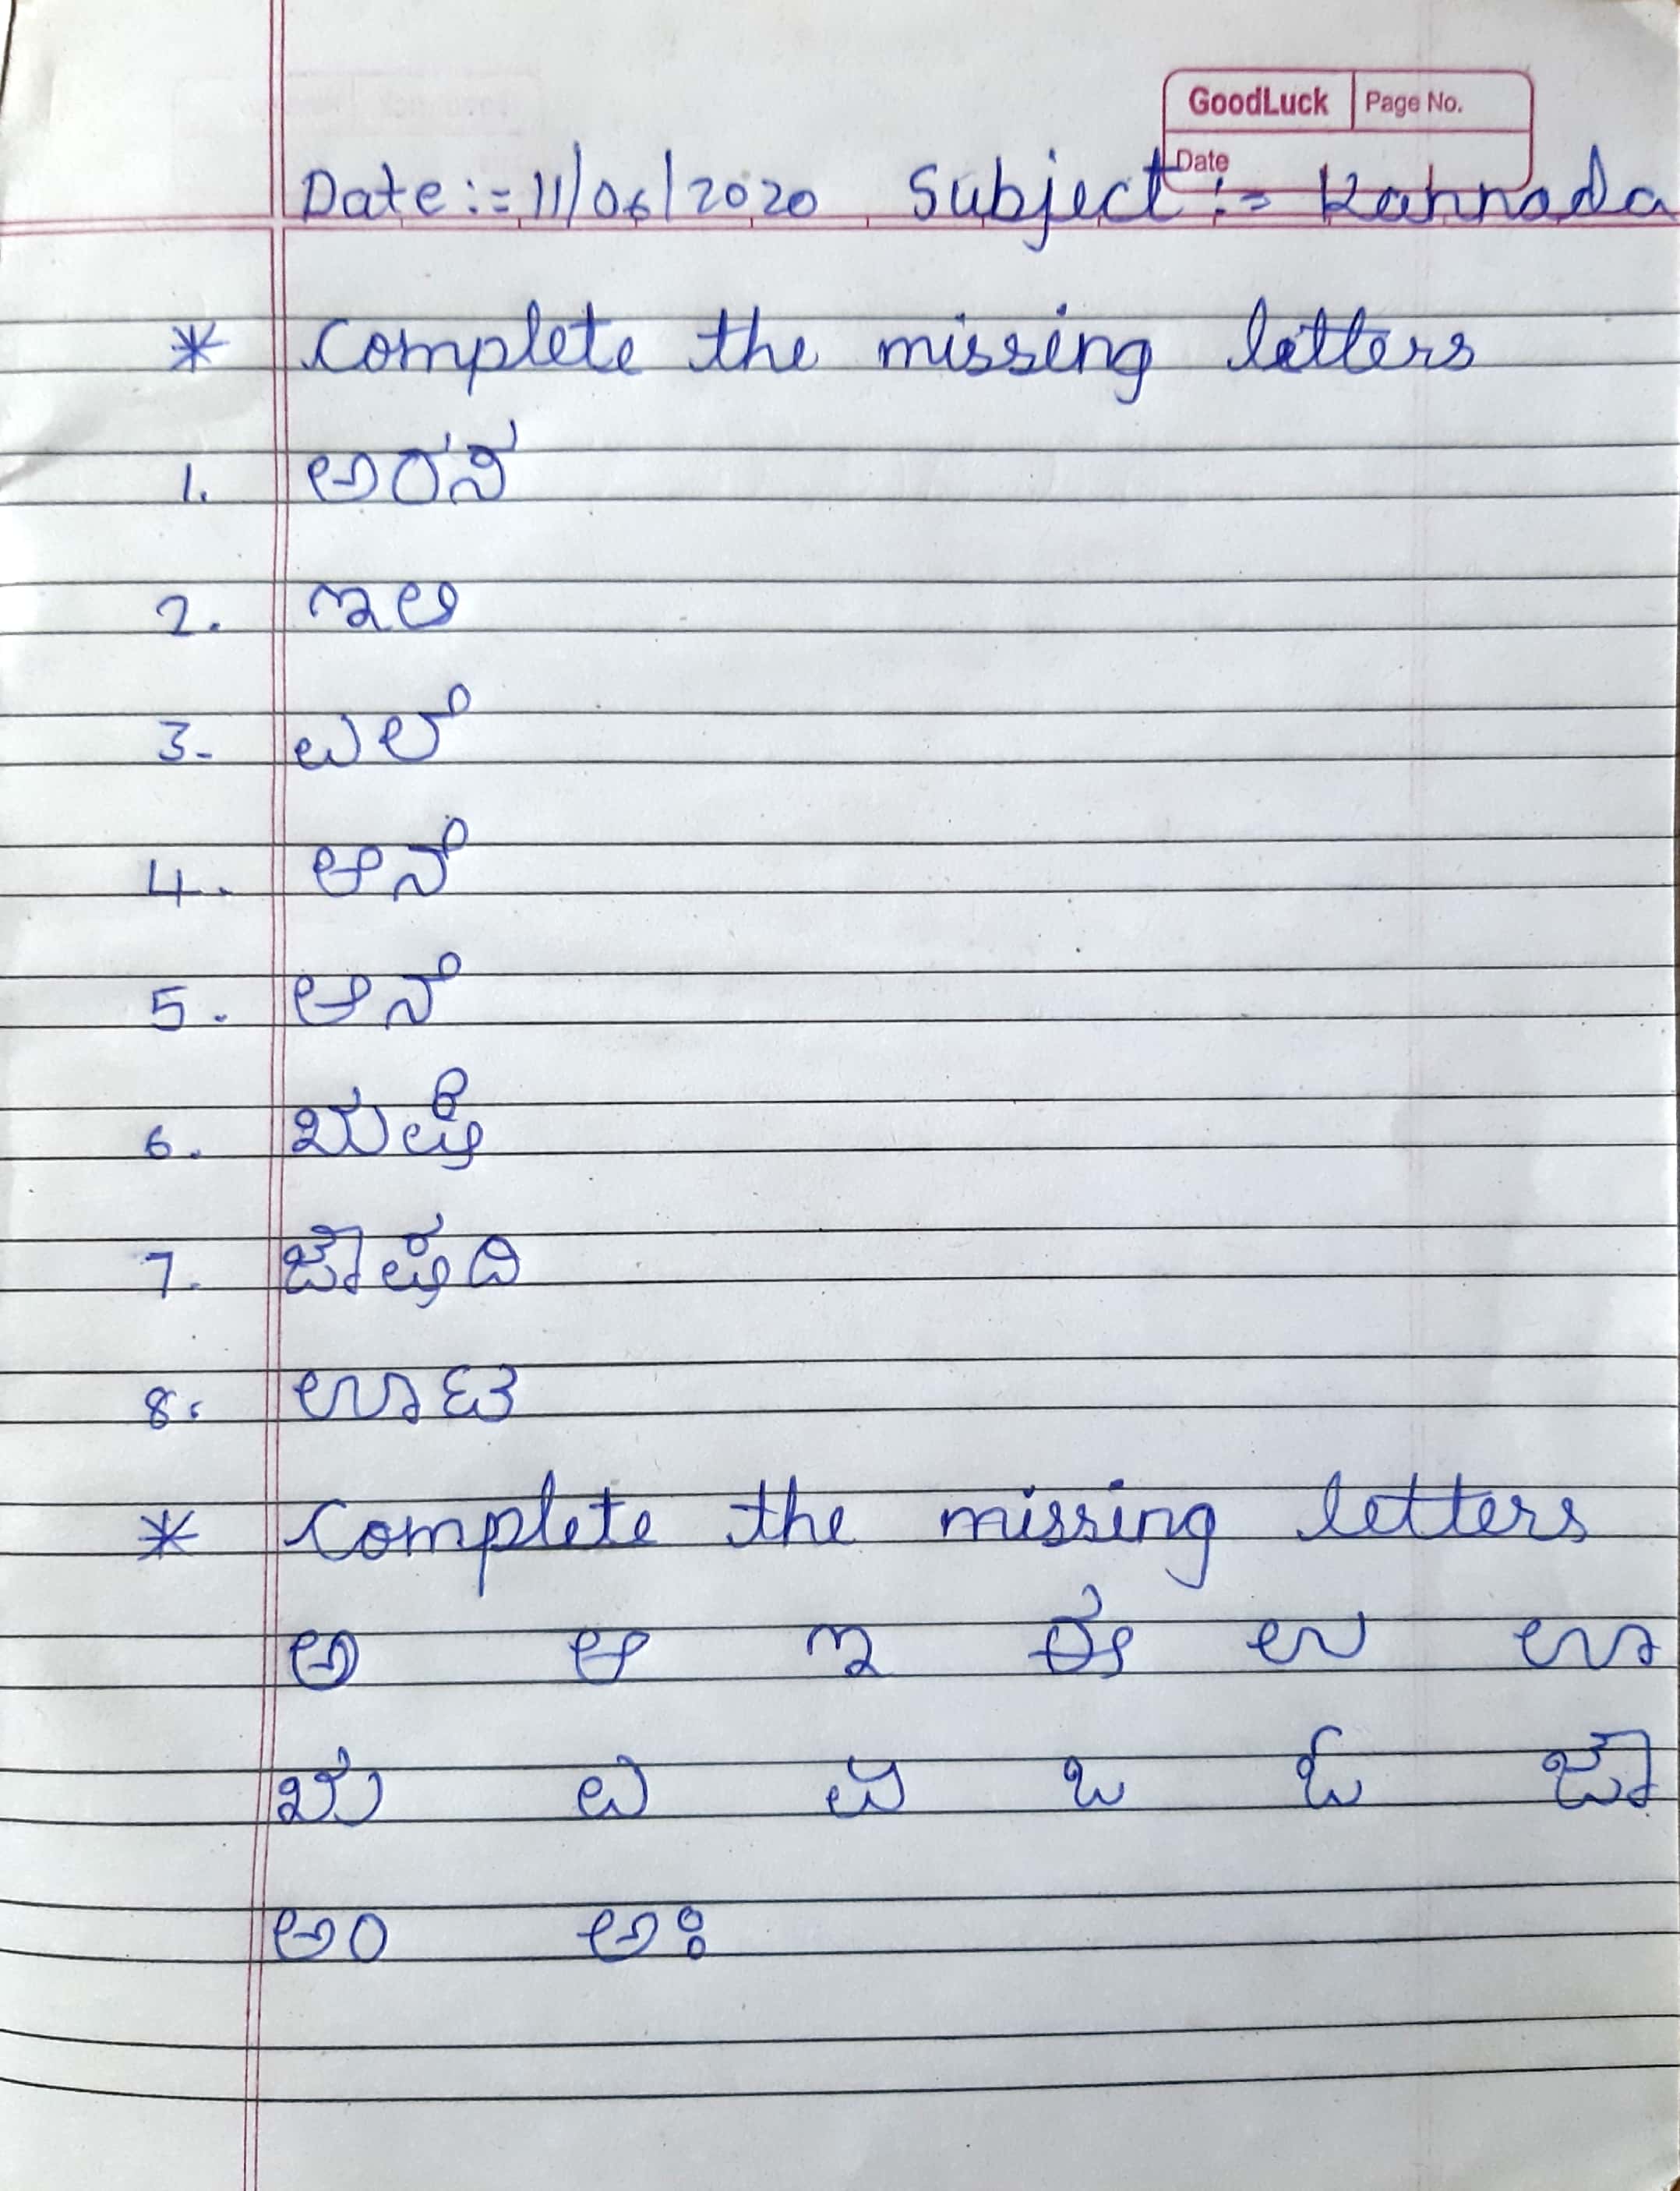 GoodLuck Page No.
Date
Date :- 11/06/2020 Subject :- Kannada
* Complete the missing letters
1. ಅರಸ
2. ಇಲಿ
3. ಎಲೆ
4. ಆನೆ
5. ಆನೆ
6. ಋಷಿ
7. ಔಷದಿ
8. ಊಟ
* Complete the missing letters
ಅ ಆ ಇ ಈ ಉ ಊ
ಋ ಎ ಏ ಒ ಓ ಔ
ಅಂ ಅಃ